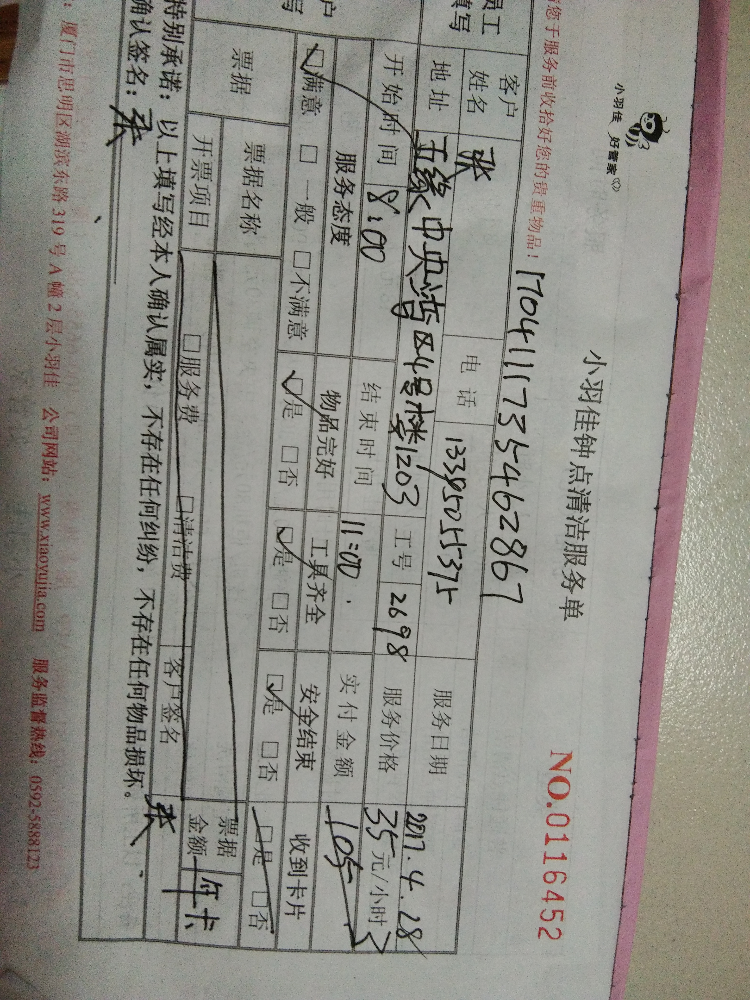 小羽佳 好管家
小羽佳钟点清洁服务单
NO.0116452
您于服务前收拾好您的贵重物品！ 17041117354628 67
员工
填写
客户
姓名 张 电话 13395055375 服务日期 2017.4.28
地址 五缘中央湾区4号楼1203 工号 2698 服务价格 35元/小时
开始时间 8:00 结束时间 11:00. 实付金额 105
户
写
服务态度 物品完好 工具齐全 安全结束 收到卡片
☑满意 □一般 □不满意 ☑是 □否 ☑是 □否 ☑是 □否 □是 □否
票据 票据名称 票据金额 年卡
开票项目 □服务费 □清洁费 客户签名 张
特别承诺：以上填写经本人确认属实，不存在任何纠纷，不存在任何物品损坏。
确认签名：张
：厦门市思明区湖滨东路319号A幢2层小羽佳 公司网站：www.xiaoyujia.com 服务监督热线：0592-5888123